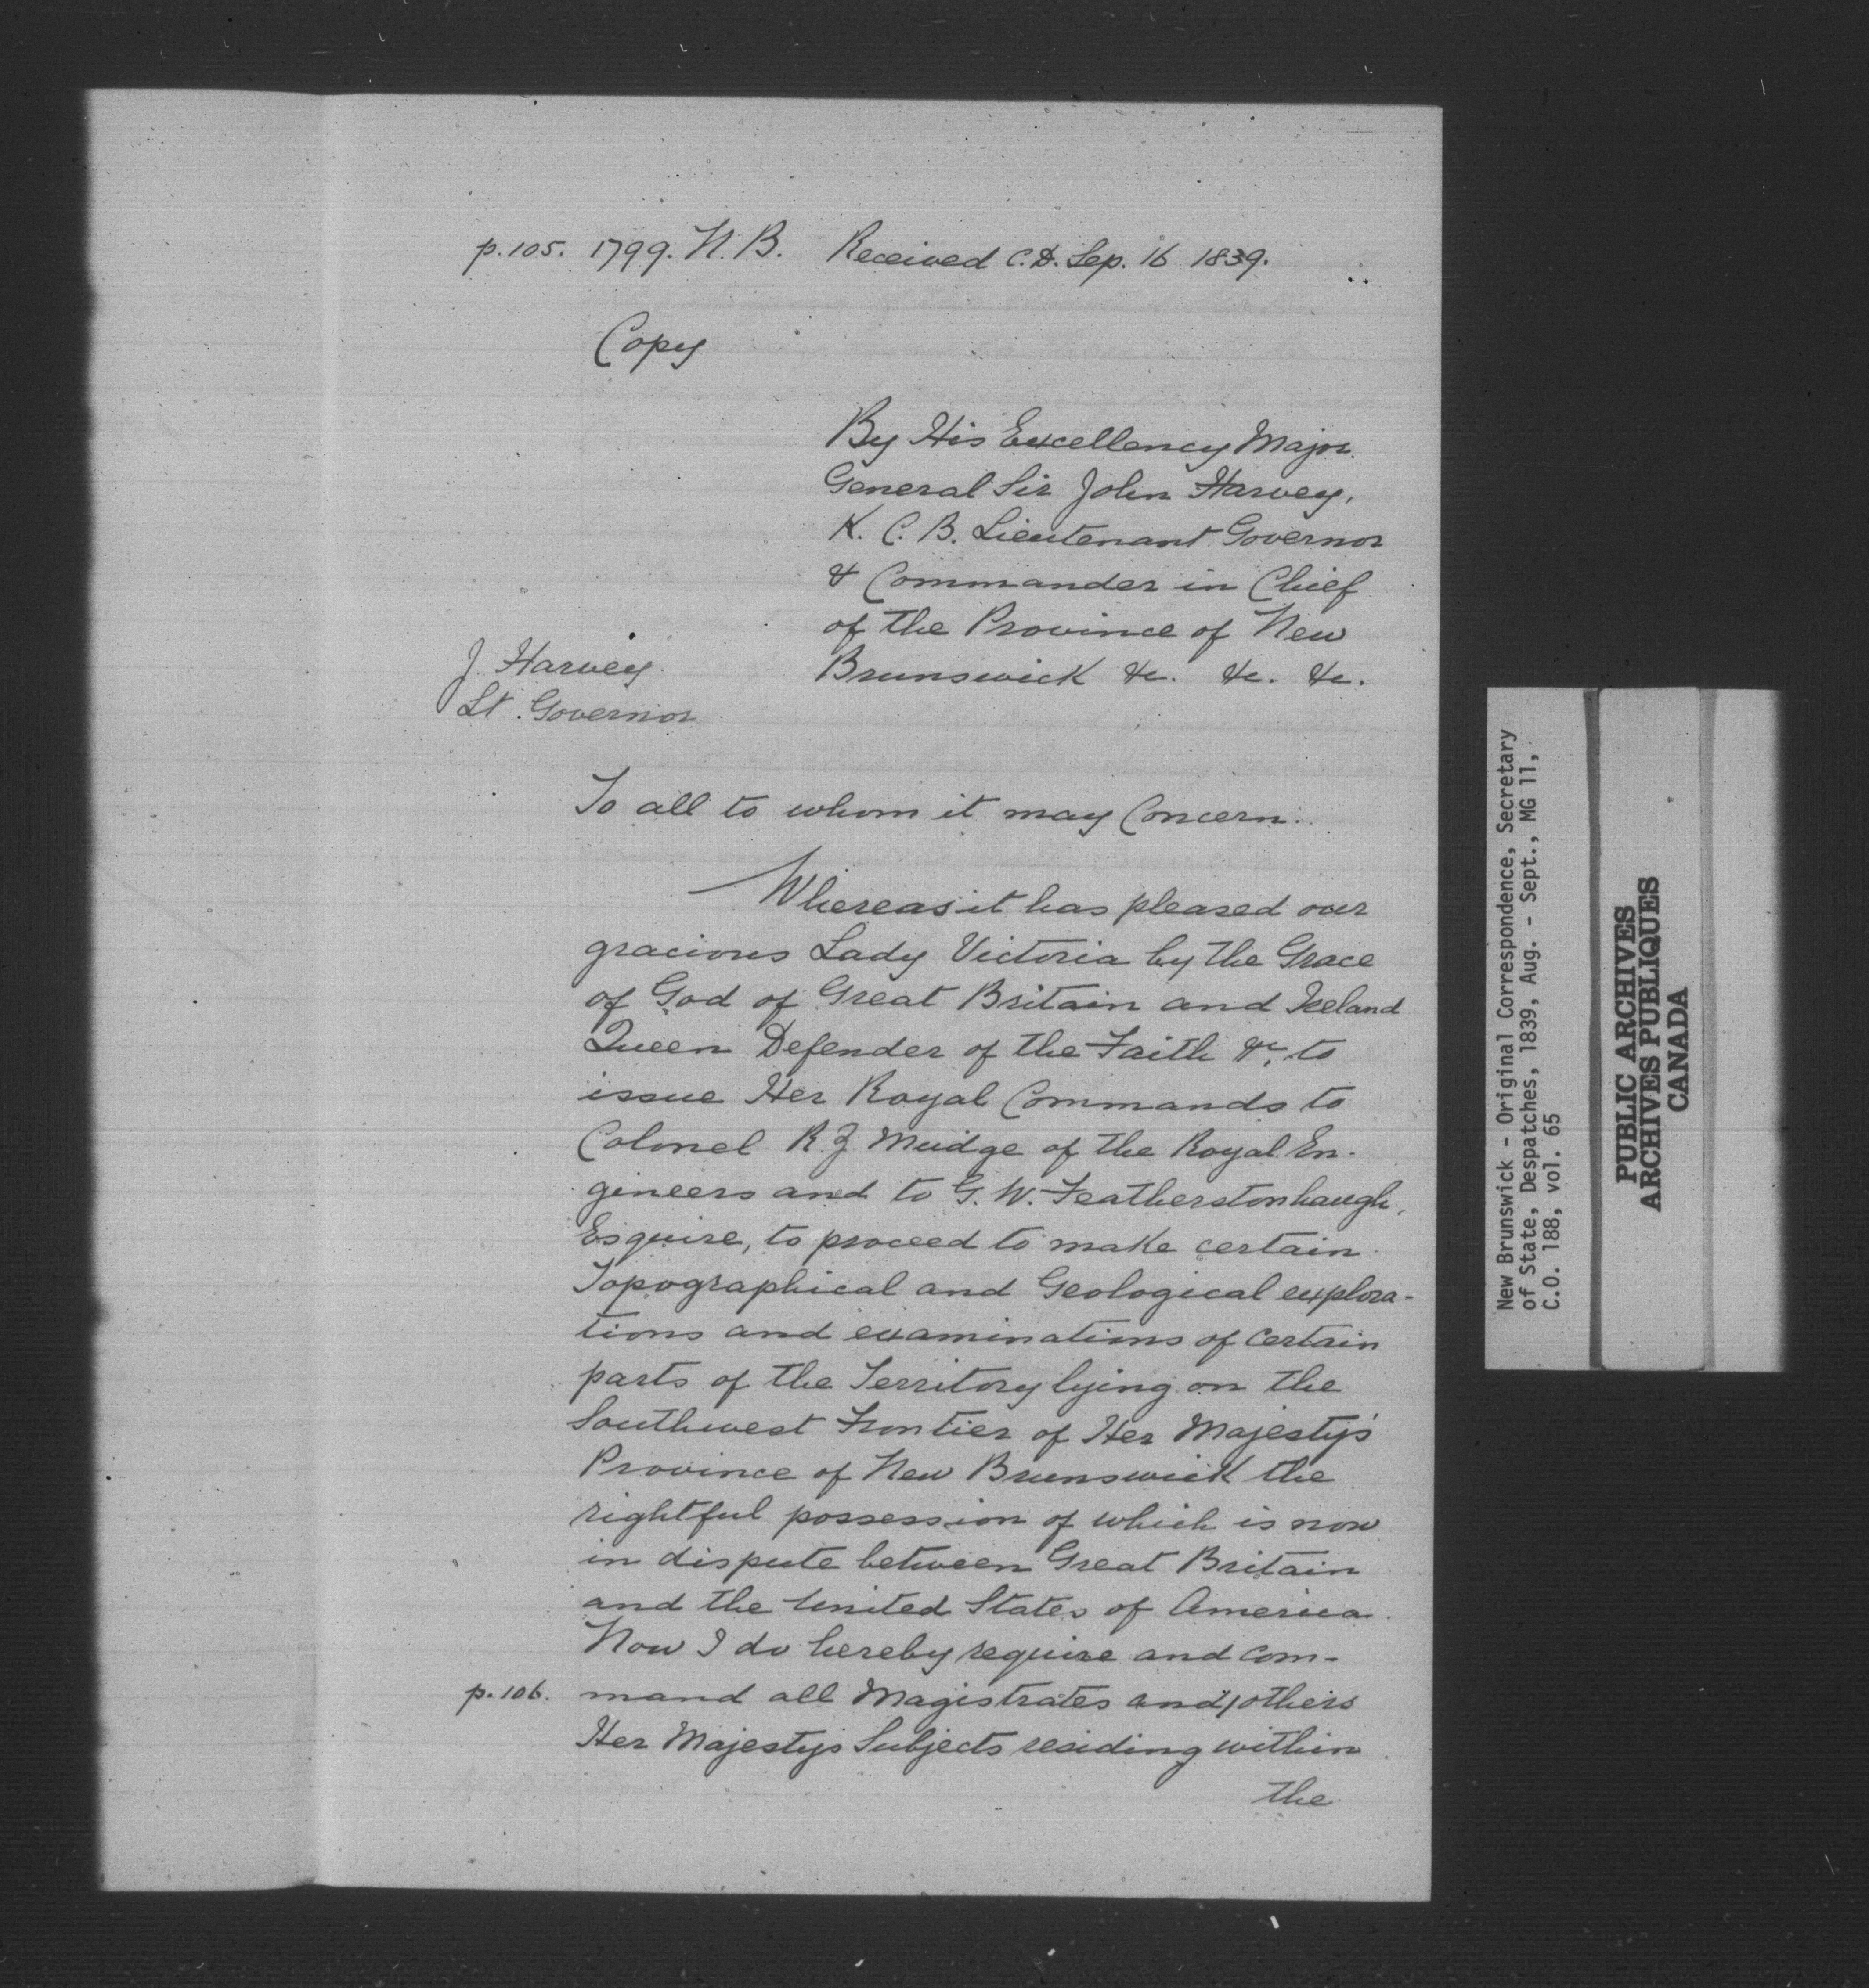 p.105. 1799. N.B. Received C.D. Sep. 16 1839.
Copy
By His Excellency Major
General Sir John Harvey,
K. C. B. Lieutenant Governor
& Commander in Chief
of the Province of New
Brunswick &c. &c. &c.
J. Harvey
Lt. Governor
To all to whom it may Concern.
Whereas it has pleased our
gracious Lady Victoria by the Grace
of God of Great Britain and Ireland
Queen Defender of the Faith &c, to
issue Her Royal Commands to
Colonel R Z Mudge of the Royal En-
gineers and to G. W. Featherstonhaugh,
Esquire, to proceed to make certain
Topographical and Geological explora-
tions and examinations of certain
parts of the Territory lying on the
Southwest Frontier of Her Majesty's
Province of New Brunswick the
rightful possession of which is now
in dispute between Great Britain
and the United States of America.
Now I do hereby require and com-
p.106. mand all Magistrates and/others
Her Majestys Subjects residing within
the
New Brunswick - Original Correspondence, Secretary
of State, Despatches, 1839, Aug. - Sept., MG 11,
C.O. 188, vol. 65
PUBLIC ARCHIVES
ARCHIVES PUBLIQUES
CANADA